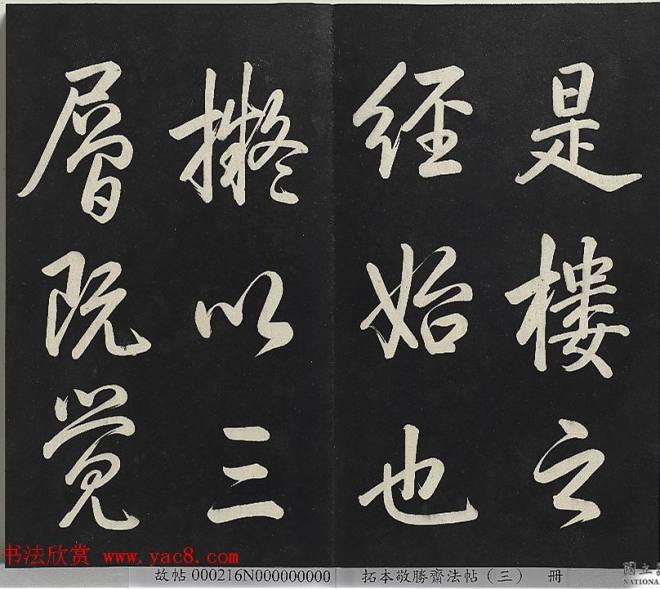 是樓之
經始也
擬以三
層既覺
书法欣赏 www.yac8.com
故帖 000216N000000000 拓本敬勝齋法帖（三） 冊
國立
NATIONAL